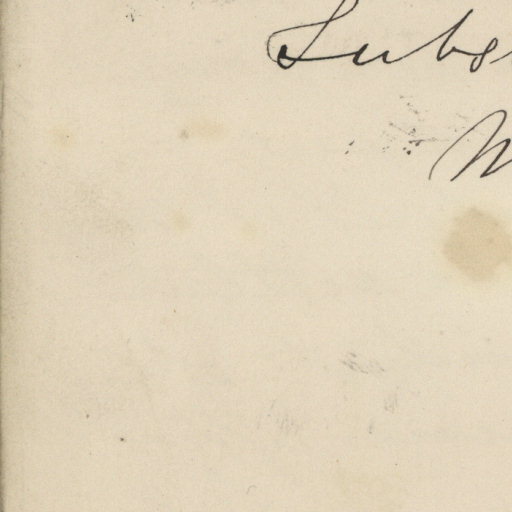 Subs
M